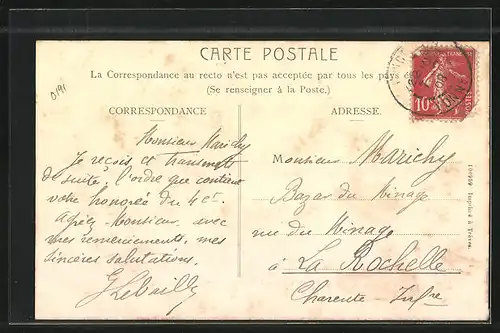 CARTE POSTALE
La Correspondance au recto n'est pas acceptée par tous les pays
(Se renseigner à la Poste.)
CORRESPONDANCE
ADRESSE.
0191
Monsieur Marichy
Je reçois et transmets
de suite, l'ordre que contient
votre honorée du 4 ct.
Agréez Monsieur avec
mes remerciements, mes
sincères salutations.
Monsieur Marichy
Bazar du Minage
rue du Minage
à La Rochelle
Charente-Infre
10
POSTES
Imprimé à Trèves